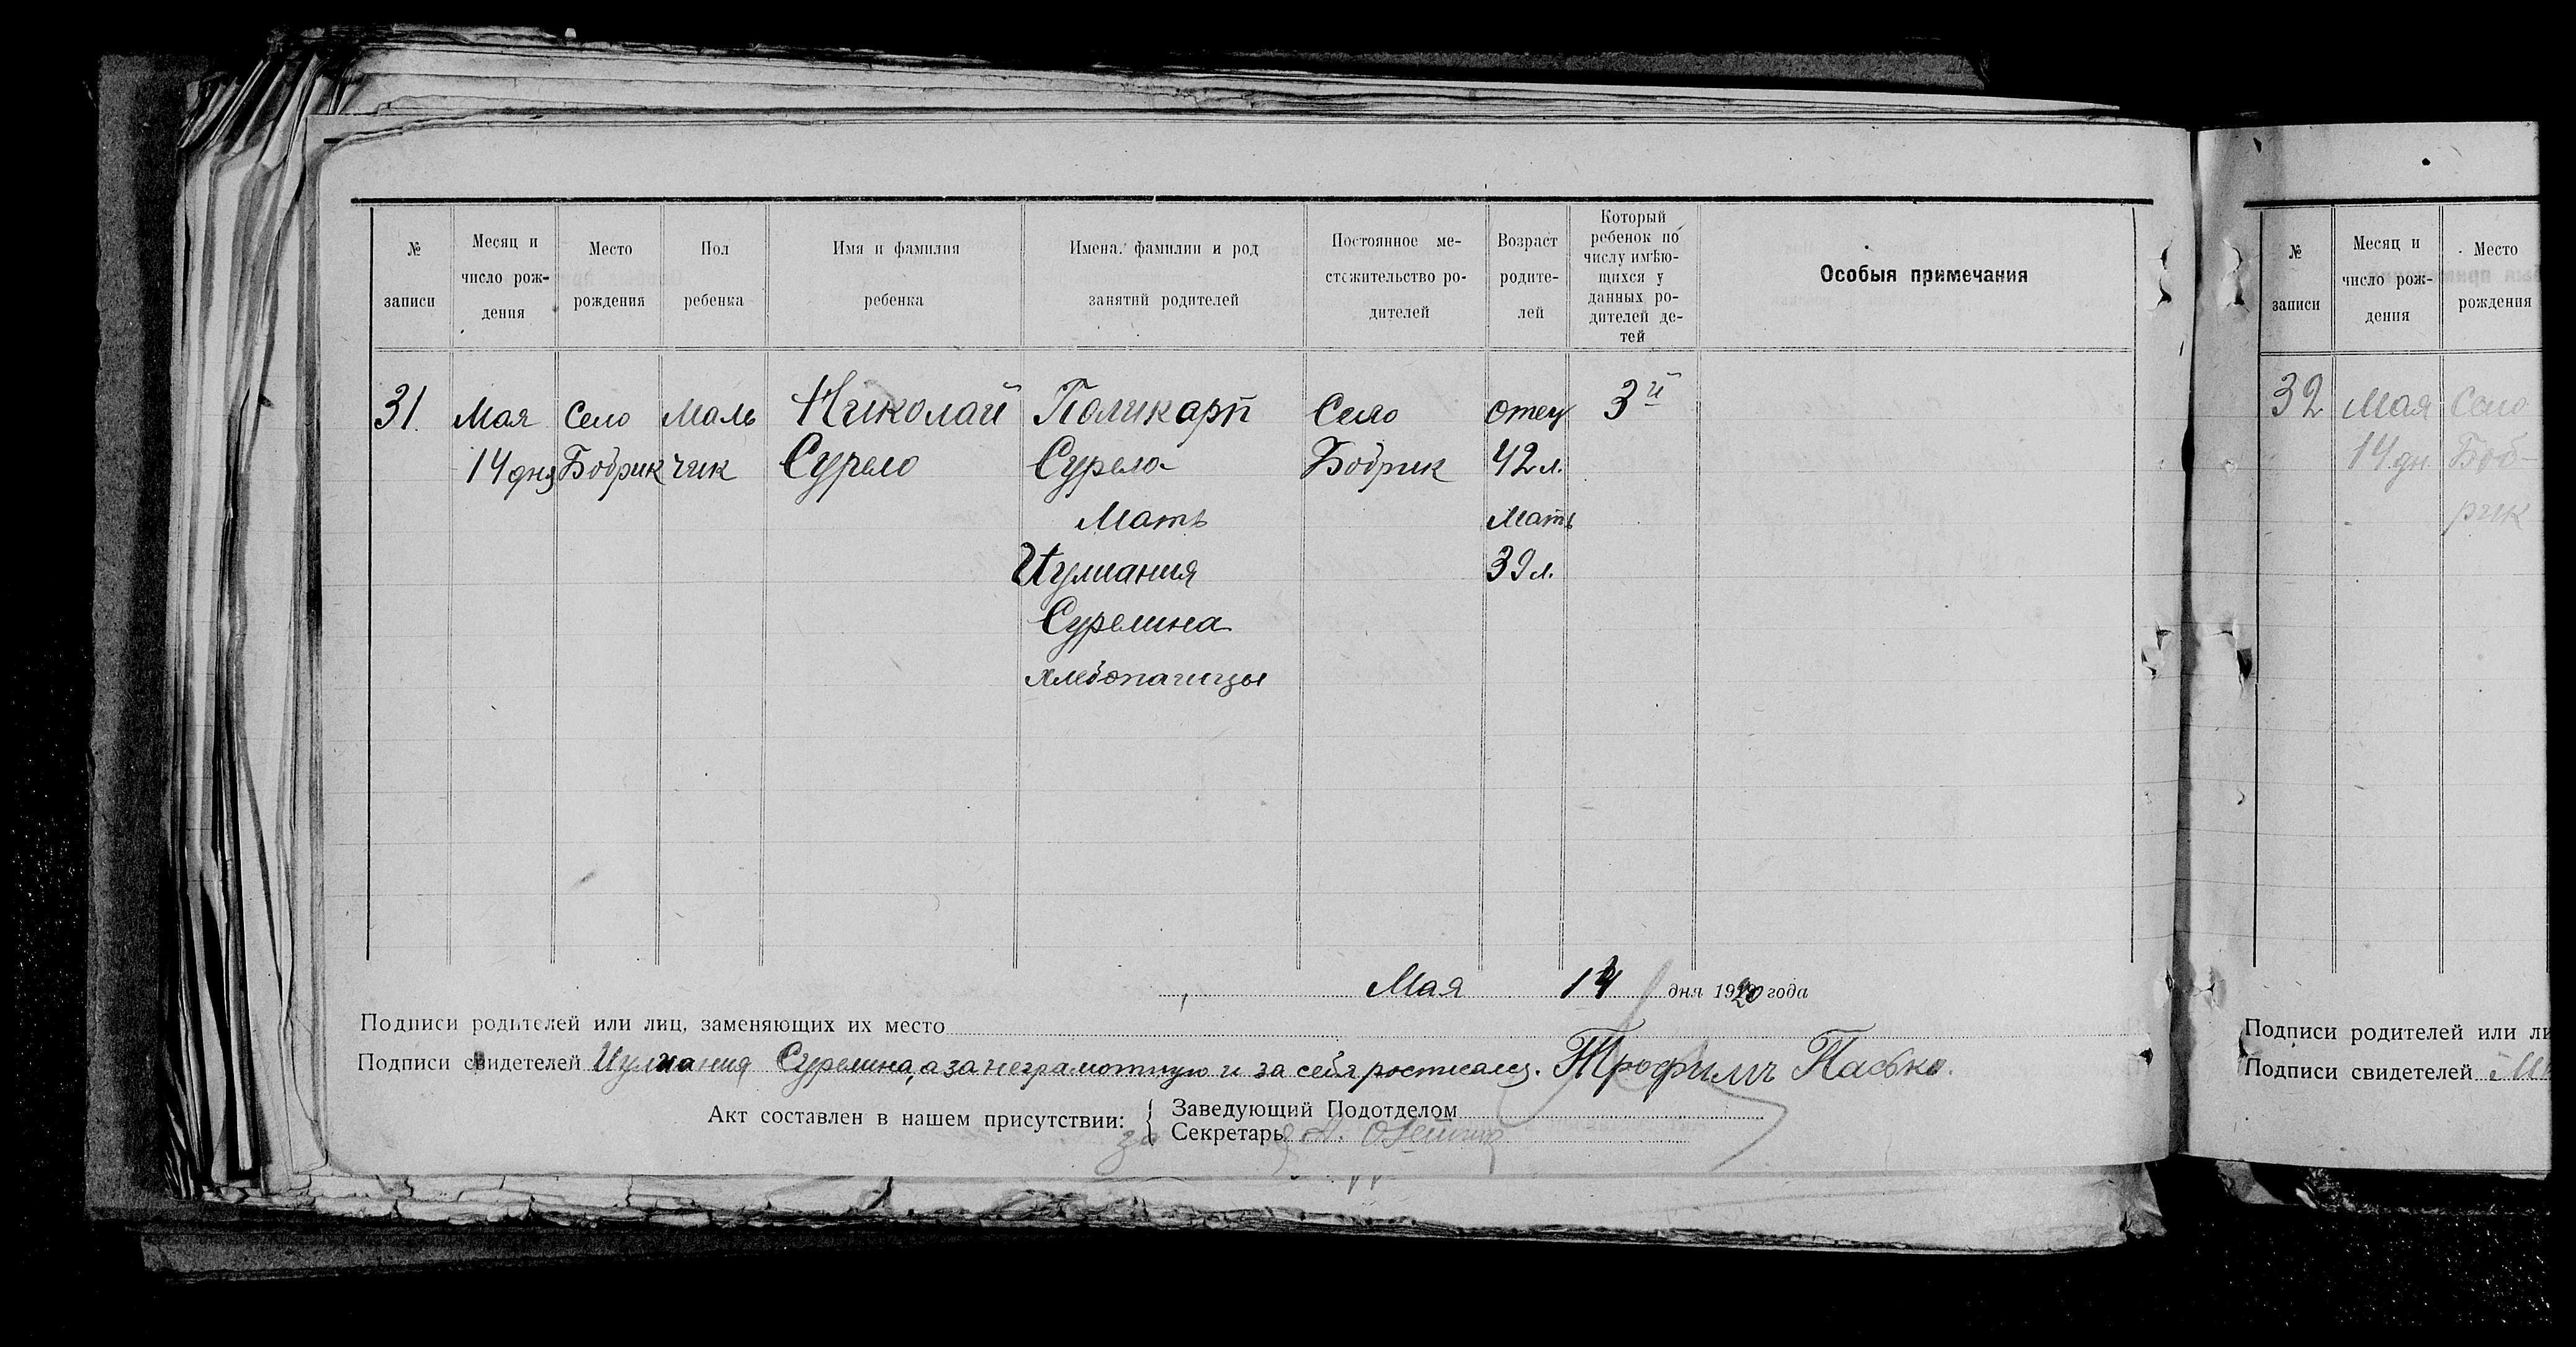 № записи
Месяц и число рож-дения
Место рождения
Пол ребенка
Имя и фамилия ребенка
Имена. фамилии и род занятий родителей
Постоянное ме-стожительство ро-дителей
Возраст родите-лей
Который ребенок по числу имѣю-щихся у данных ро-дителей де-тей
Особыя примечания
31. Мая Село Маль Николай Поликарп Село отец 3й
14 дня Бобрик чик Сурело Сурело Бобрик 42 л.
Мать Мать
Иулиания 39 л.
Сурелина
хлебопашцы
Мая 14 дня 1920 года
Подписи родителей или лиц, заменяющих их место
Подписи свидетелей Иулиания Сурелина, а за неграмотную и за себя росписался. Трофимъ Пасько.
Акт составлен в нашем присутствии:
Заведующий Подотделом
за Секретарь
№ записи
Месяц и число рож-дения
Место рождения
32 Мая Село
14 дн Боб-
рик
Подписи родителей или ли
Подписи свидетелей